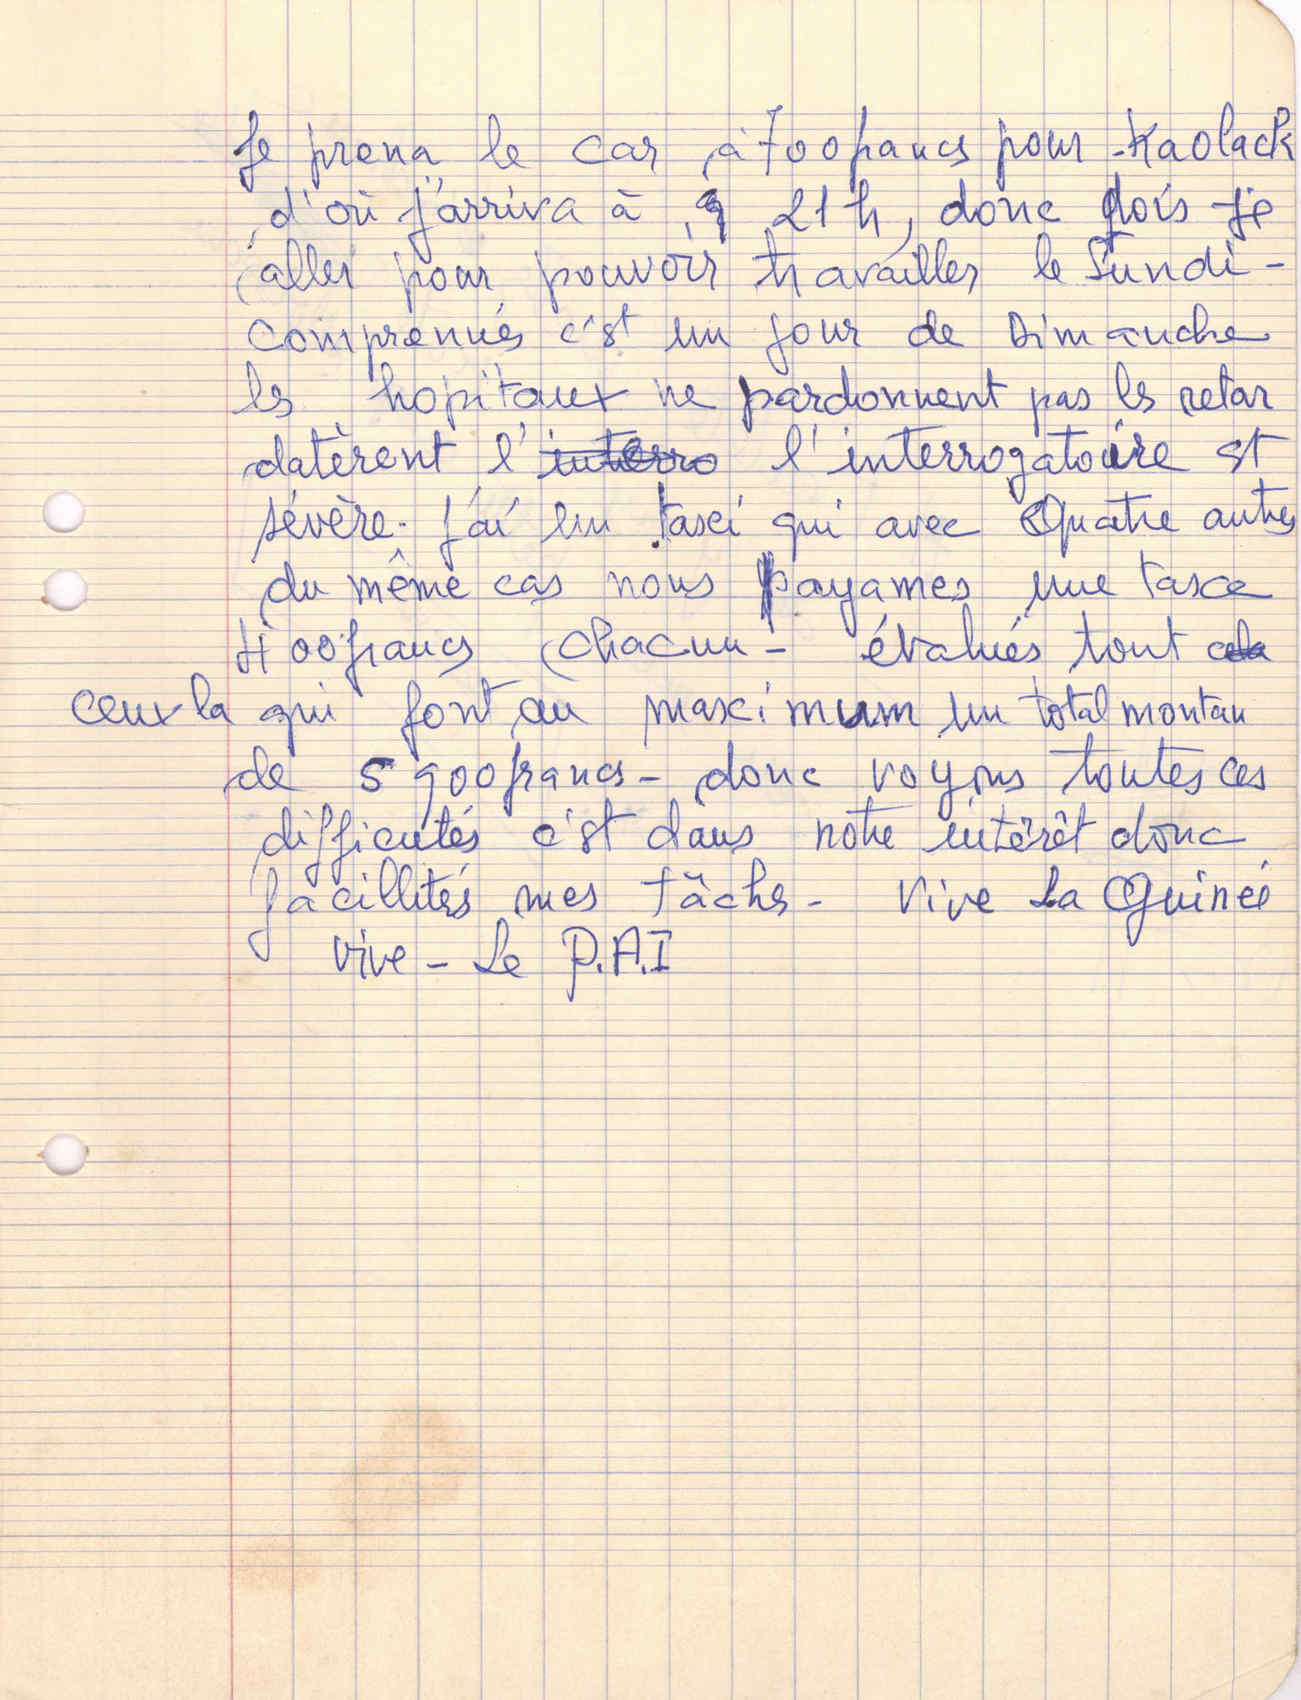 Je prena le car à 700francs pour Kaolack
d'où j'arriva à 21h, donc dois je
aller pour pouvoir travailler le lundi -
comprenués c'est un jour de Dimanche
les hopitaux ne pardonnent pas les retar
datèrent l'interro l'interrogatoire est
sévère. j'ai lu taxi qui avec Quatre autres
du même cas nous payames une taxe
400francs chacun - évalués tout cela
ceux la qui font au maximum un total montan
de 5900francs - donc voyons toutes ces
difficutés c'est dans notre intérêt donc
facillités mes tâches - Vive La Guineé
vive - Le P.A.I